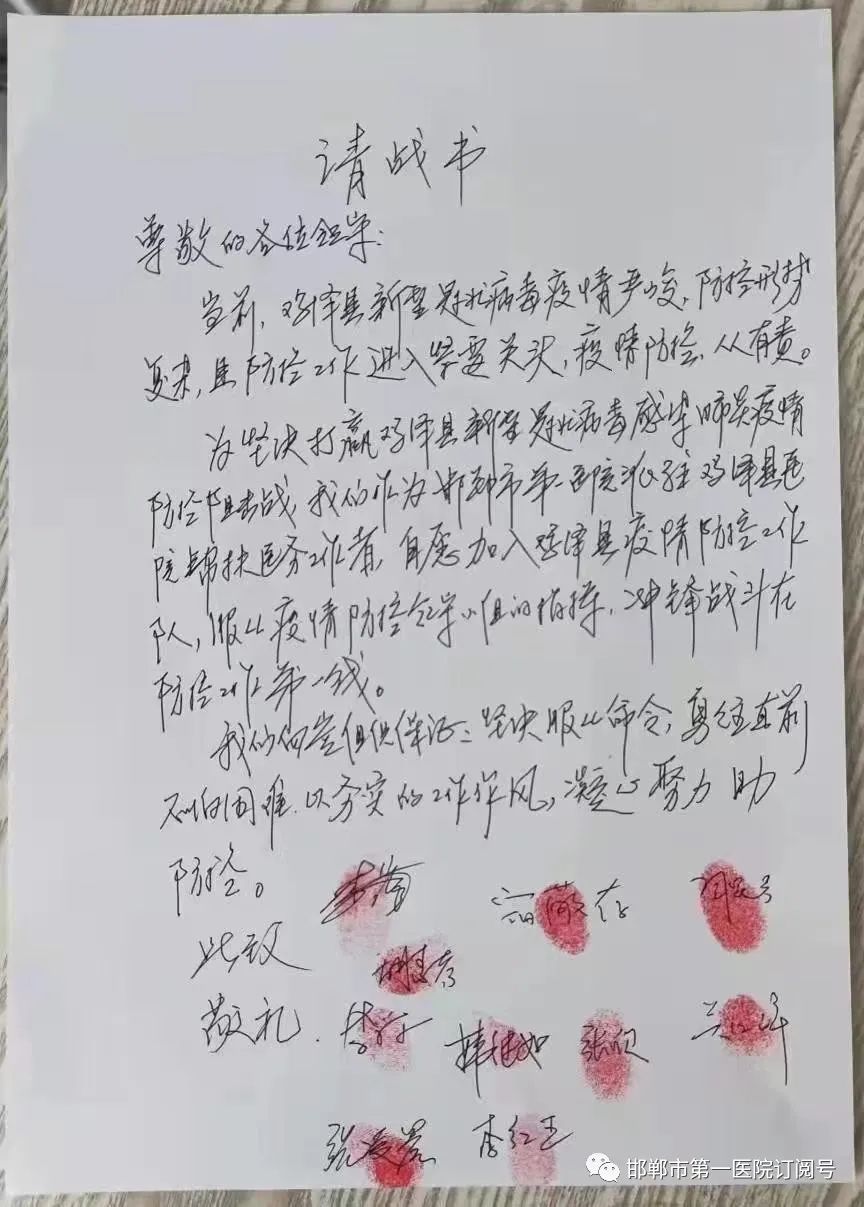 请战书
尊敬的各位领导:
当前,鸡泽县新型冠状病毒疫情严峻,防控形势
复杂,且防控工作进入紧要关头,疫情防控,人人有责。
为坚决打赢鸡泽县新型冠状病毒感染肺炎疫情
防控阻击战,我们作为邯郸市第一医院派驻鸡泽县医
院帮扶医务工作者,自愿加入鸡泽县疫情防控工作
队,服从疫情防控领导小组的指挥,冲锋战斗在
防控工作第一线。
我们向党组织保证:坚决服从命令,勇往直前
不怕困难,以务实的工作作风,凝心聚力助
防控。
此致
敬礼.
韩继如 张欣
李红玉
邯郸市第一医院订阅号